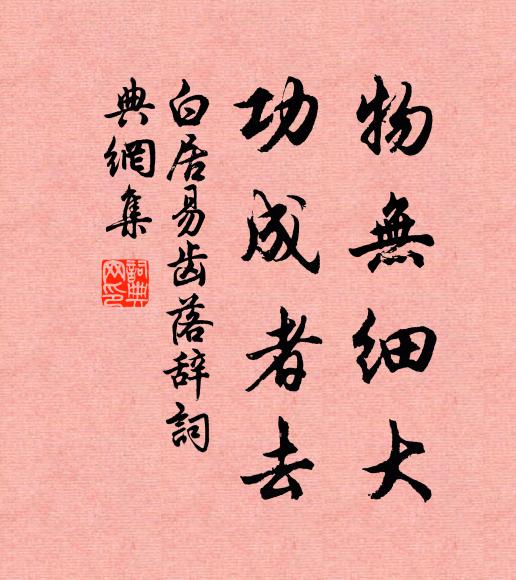 物無細大
功成者去
白居易齿落辞詞
典網集
詞典
网印